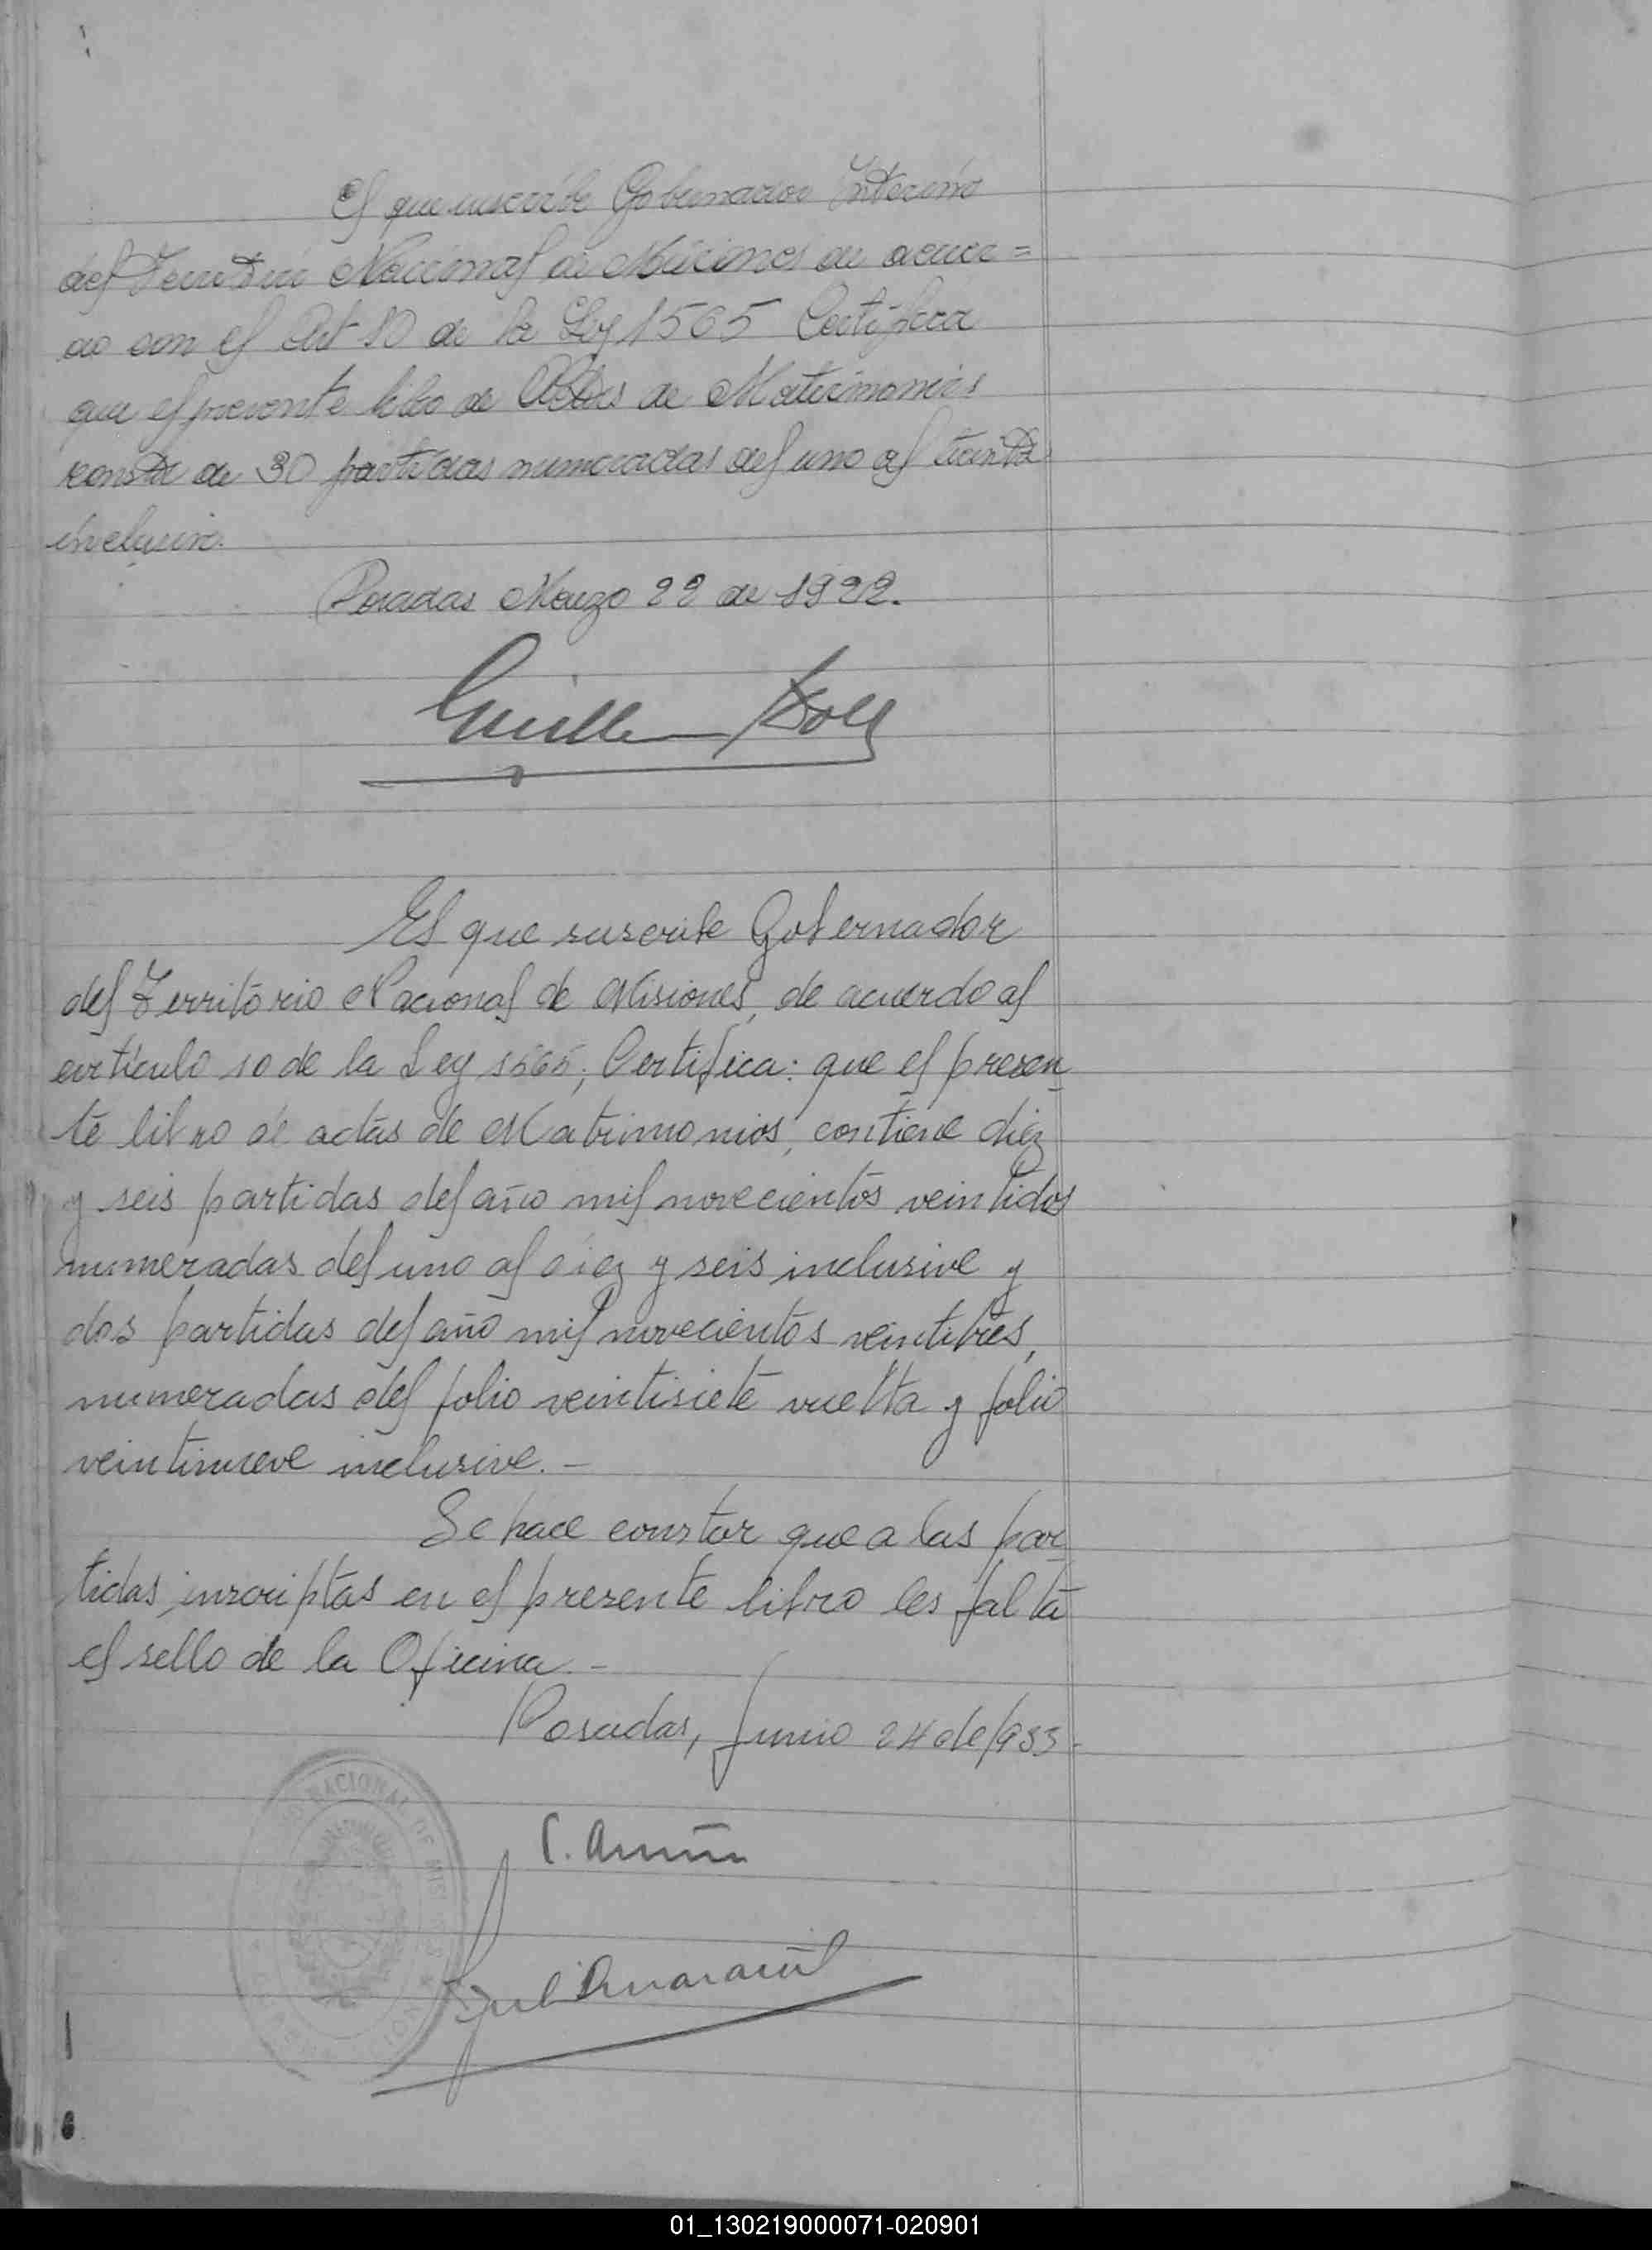 El que suscribe Gobernador Interino
del Territorio Nacional de Misiones de acuer=
do con el Art 10 de la Ley 1565 Certifica
que el presente libro de Actas de Matrimonios
consta de 30 partidas numeradas del uno al treinta
inclusive.
Posadas Marzo 22 de 1922.
El que suscribe Gobernador
del Territorio Nacional de Misiones, de acuerdo al
artículo 10 de la Ley 1565; Certifica: que el presen_
te libro de actas de Matrimonios, contiene diez
y seis partidas del año mil novecientos veintidos
numeradas del uno al diez y seis inclusive y
dos partidas del año mil novecientos veintitres,
numeradas del folio veintisiete vuelta y folio
veintinueve inclusive.-
Se hace constar que a las par_
tidas inscriptas en el presente libro les falta
el sello de la Oficina.-
Posadas, Junio 24 de 1933.
NACIONAL DE MIS
01_130219000071-020901